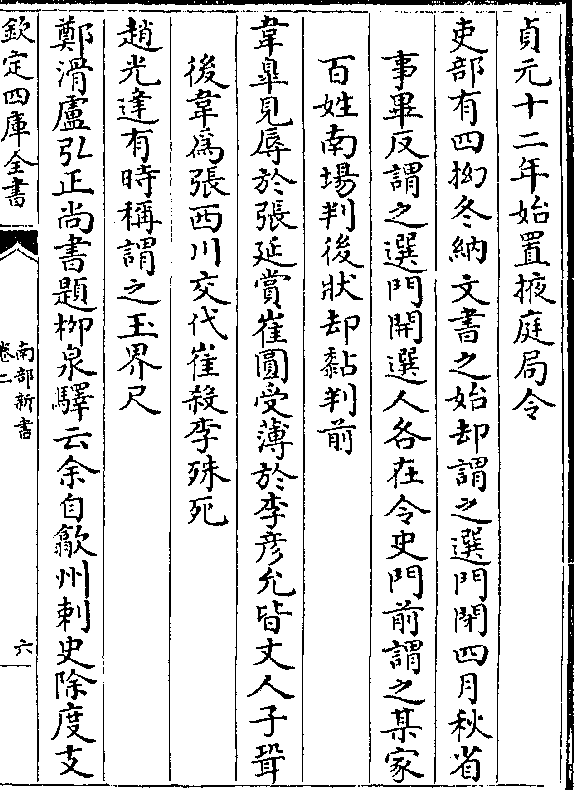 貞元十二年始置掖庭局令
吏部有四拗冬納文書之始却謂之選門閉四月秋省
事畢反謂之選門開選人各在令史門前謂之某家
百姓南場判後狀却黏判前
韋臯見辱於張延賞崔圓受薄於李彦允皆丈人子壻
後韋為張西川交代崔殺李殊死
趙光逹有時稱謂之玉界尺
鄭滑盧弘正尚書題栁泉驛云余自歙州刺史除度支
欽定四庫全書
南部新書
卷二
六